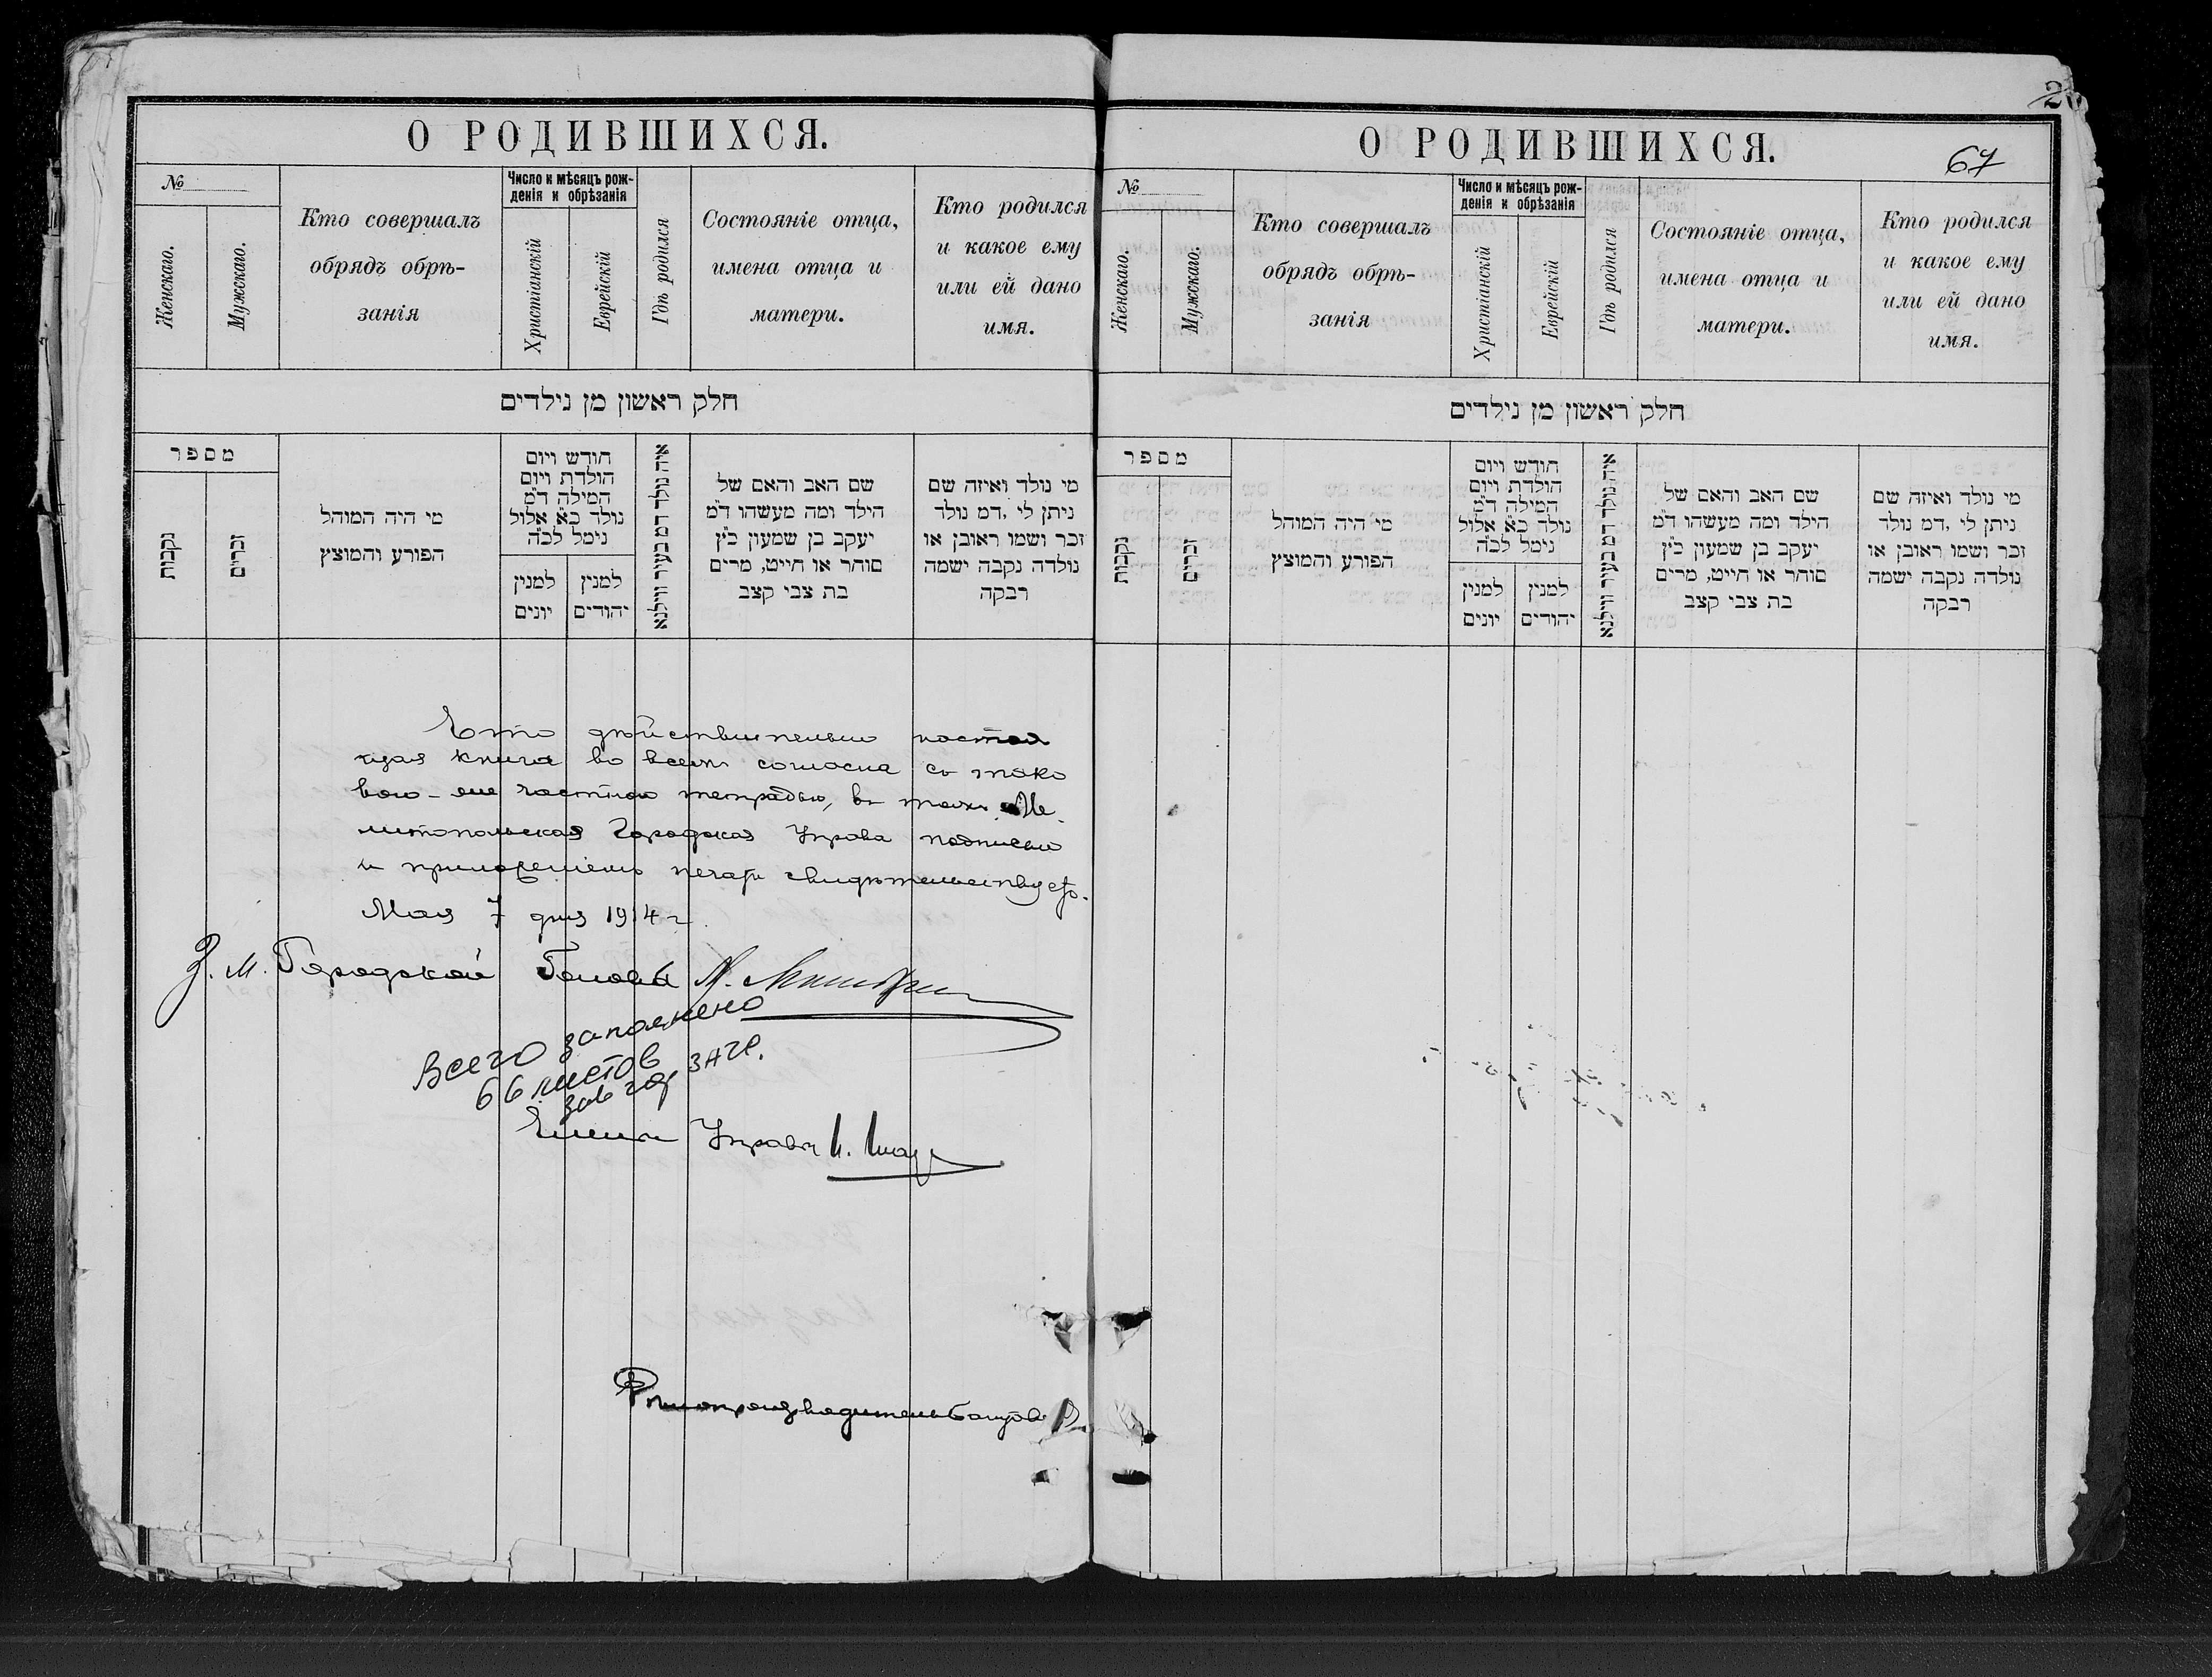 О РОДИВШИХСЯ.
№
Женскаго.
Мужскаго.
Кто совершалъ
обрядъ обрѣ-
занія
Число и мѣсяцъ рож-
денія и обрѣзанія
Христіанскій
Еврейскій
Гдѣ родился
Состояніе отца,
имена отца и
матери.
Кто родился
и какое ему
или ей дано
имя.
חלק ראשון מן נילדים
מספר
נקבות
זכרים
מי היה המוהל
הפורע והמוצץ
חודש ויום
הולדת ויום
המילה ד״מ
נולד כ״א אלול
נימל לכ״ה
למנין
יונים
למנין
יהודים
איה נולד דמ בעיר ווילנא
שם האב והאם של
הילד ומה מעשהו ד״מ
יעקב בן שמעון כ״ץ
סוחר או חייט, מרים
בת צבי קצב
מי נולד ואיזה שם
ניתן לי ,דמ נולד
זכר ושמו ראובן או
נולדה נקבה ישמה
רבקה
Что дѣйствительно настоя
щая книга во всемъ согласна съ тако
вою-же частною тетрадью, въ томъ Ме
литопольская Городская Управа подписью
и приложеніемъ печати свидѣтельствуетъ.
Мая 7 дня 1914 г.
З. М. Городской Головы
Всего заполнено
66 листов
зав. гор ЗАГС.
Членъ Управы
Дѣлопроизводитель
О РОДИВШИХСЯ.
67
№
Женскаго.
Мужскаго.
Кто совершалъ
обрядъ обрѣ-
занія
Число и мѣсяцъ рож-
денія и обрѣзанія
Христіанскій
Еврейскій
Гдѣ родился
Состояніе отца,
имена отца и
матери.
Кто родился
и какое ему
или ей дано
имя.
חלק ראשון מן נילדים
מספר
נקבות
זכרים
מי היה המוהל
הפורע והמוצץ
חודש ויום
הולדת ויום
המילה ד״מ
נולד כ״א אלול
נימל לכ״ה
למנין
יונים
למנין
יהודים
איה נולד דמ בעיר ווילנא
שם האב והאם של
הילד ומה מעשהו ד״מ
יעקב בן שמעון כ״ץ
סוחר או חייט, מרים
בת צבי קצב
מי נולד ואיזה שם
ניתן לי ,דמ נולד
זכר ושמו ראובן או
נולדה נקבה ישמה
רבקה